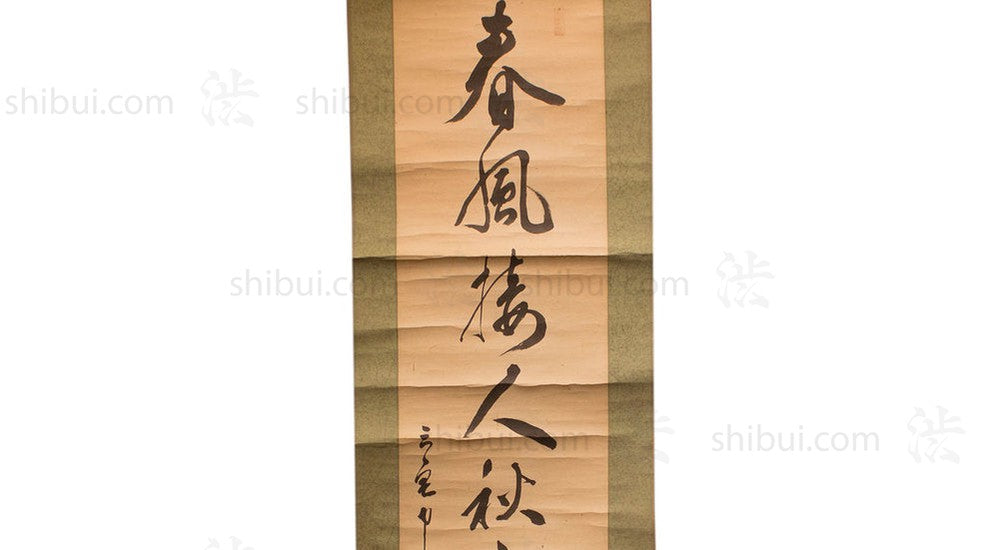 春風接人秋
shibui.com 渋 shibui.com
shibui.com shibui.com 渋
shibui.com shibui.com 渋